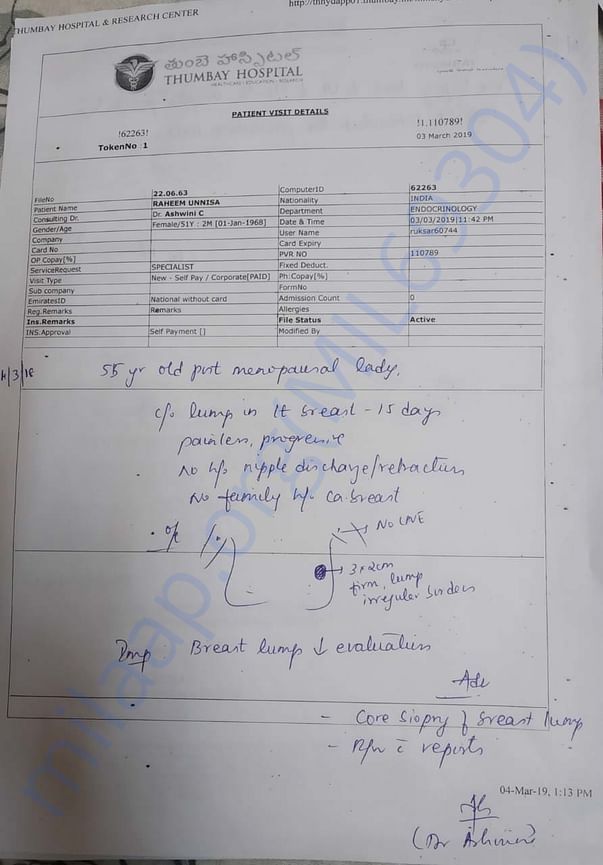 THUMBAY HOSPITAL & RESEARCH CENTER
తుంబె హాస్పిటల్
THUMBAY HOSPITAL
HEALTHCARE | EDUCATION | RESEARCH
PATIENT VISIT DETAILS
!62263! !1,110789!
TokenNo 1 03 March 2019
FileNo 22.06.63 ComputerID 62263
Patient Name RAHEEM UNNISA Nationality INDIA
Consulting Dr. Dr. Ashwini C Department ENDOCRINOLOGY
Gender/Age Female/51Y : 2M [01-Jan-1968] Date & Time 03/03/2019|11:42 PM
Company User Name ruksar60744
Card No Card Expiry
OP Copay[%] PVR NO 110789
ServiceRequest SPECIALIST Fixed Deduct.
Visit Type New - Self Pay / Corporate[PAID] Ph:Copay[%]
Sub company FormNo
EmiratesID National without card Admission Count 0
Reg.Remarks Remarks Allergies
Ins.Remarks File Status Active
INS.Approval Self Payment [] Modified By
55 yr old post menopausal lady.
c/o lump in lt breast - 15 days
painless, progressive
no h/o nipple discharge/retraction
No family h/o ca breast
O/E
NO LNE
3x2cm
firm, lump
irregular borders
Imp Breast lump ↓ evaluation
Adv
- Core biopsy of breast lump
- R/w c̄ reports
04-Mar-19, 1:13 PM
(Dr Ashwini)
milaap.org(MIL69304)